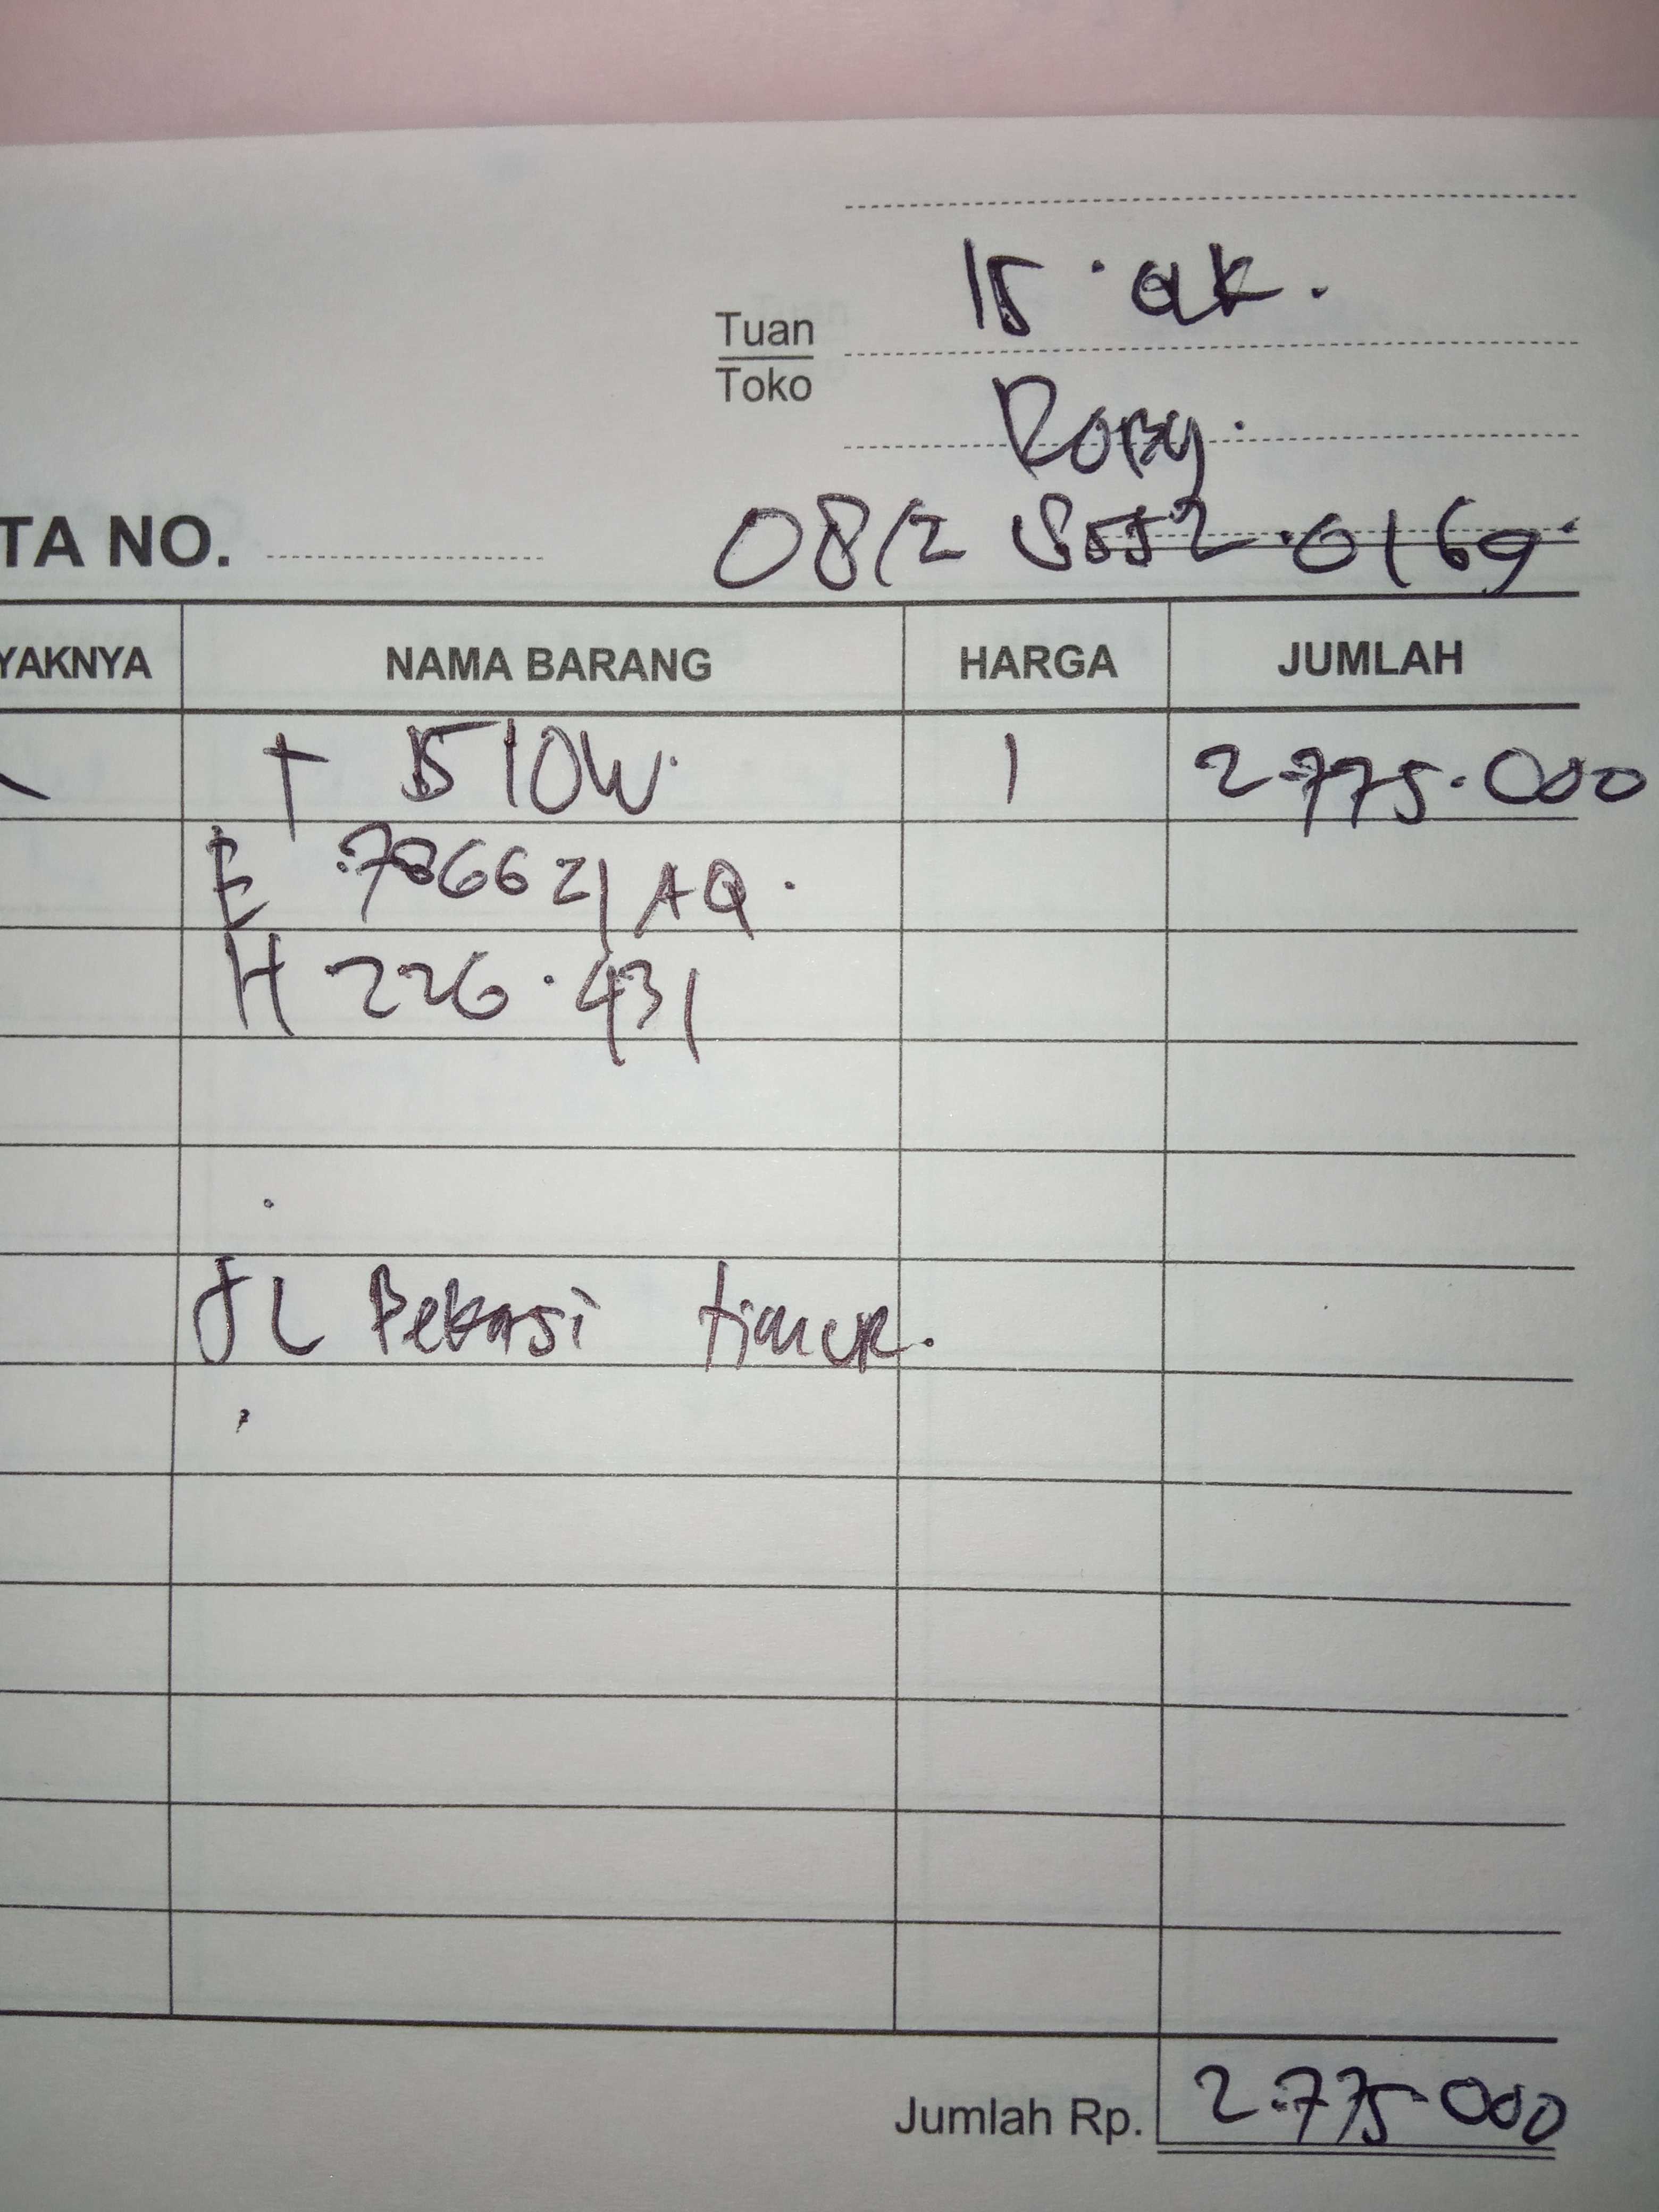 15 · ok.
Tuan
Toko
Roby.
TA NO.
0812 8552 · 0169
YAKNYA NAMA BARANG HARGA JUMLAH
T 1510W. 1 2.775.000
E .786621 AQ.
H 226.431
JL Bekasi timur.
Jumlah Rp. 2.775.000